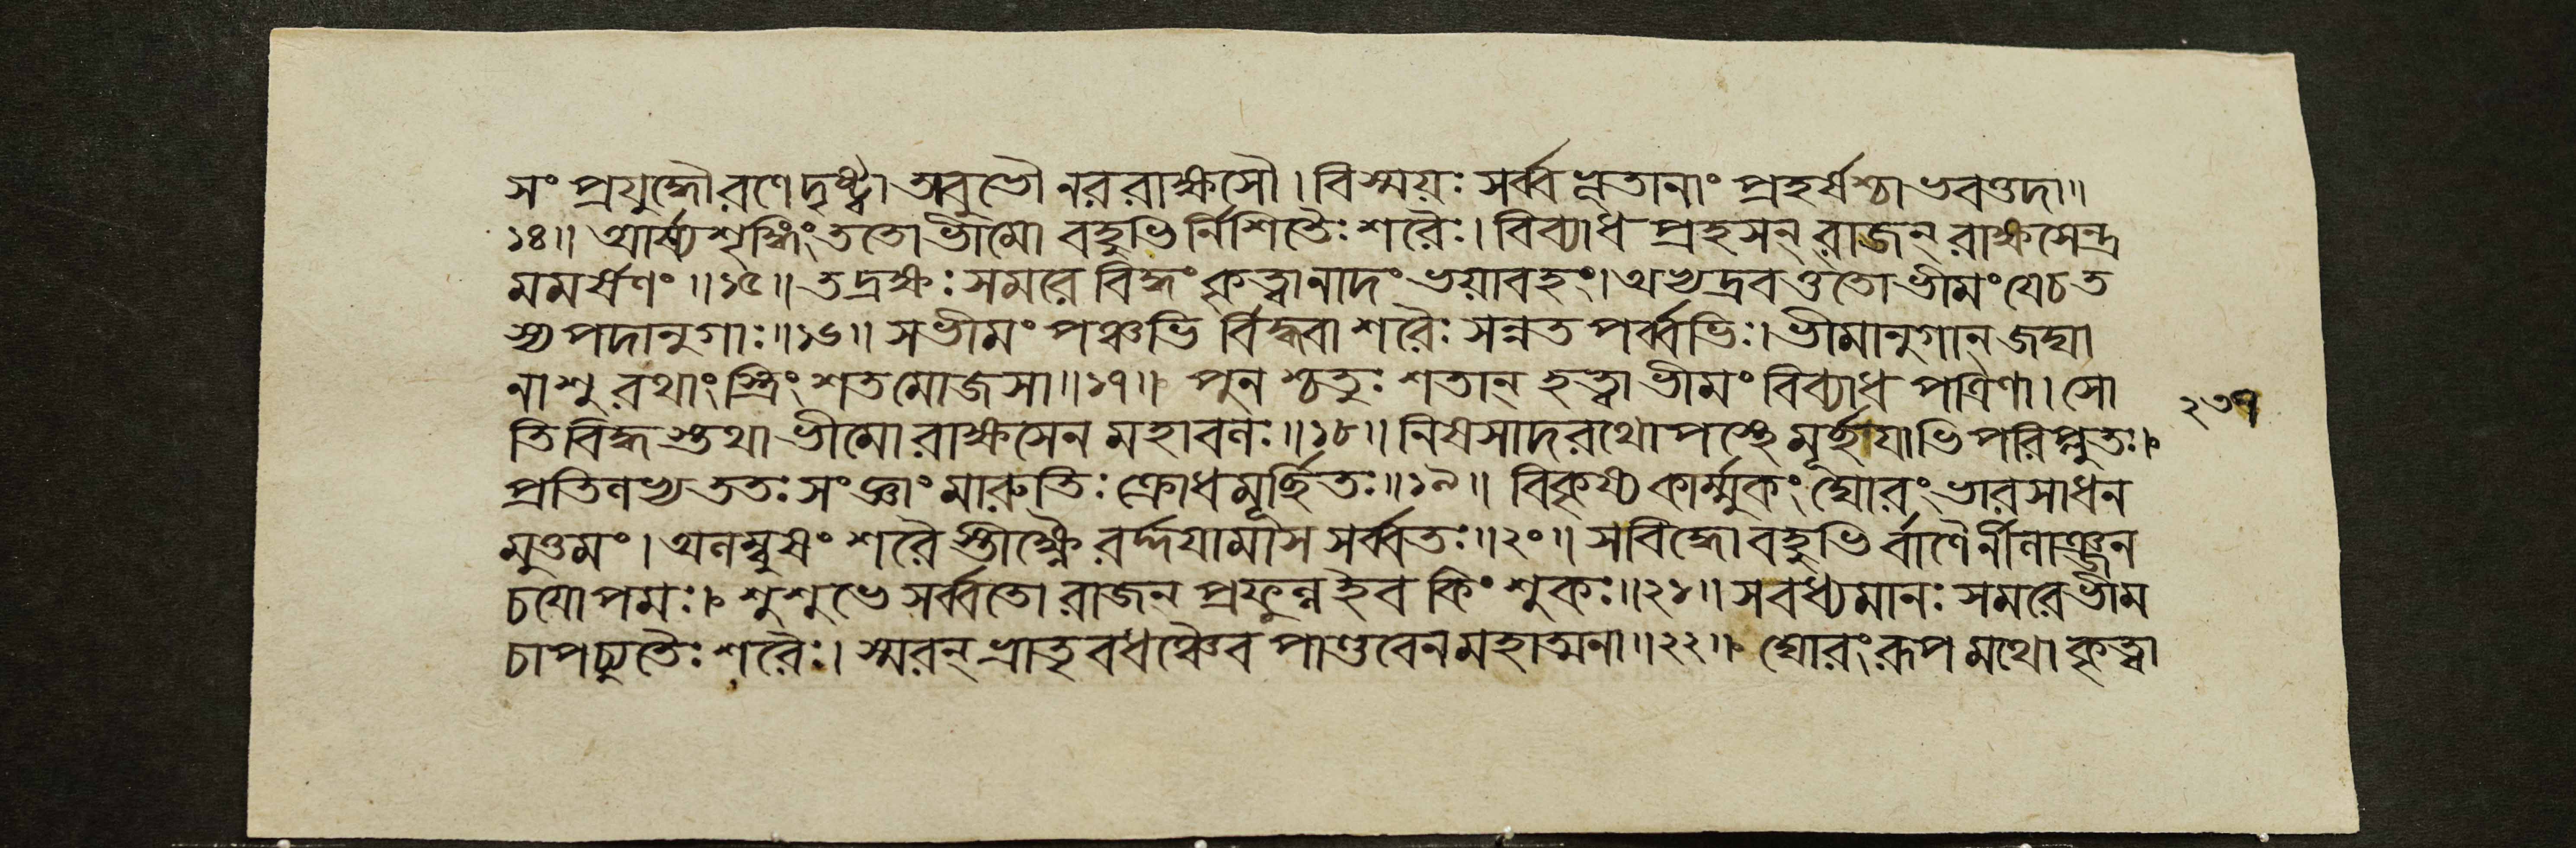 সং প্রযুদ্ধৌ রণে দৃষ্ট্বা তাবুভৌ নররাক্ষসৌ । বিস্ময়ঃ সর্ব্বভূতানাং প্রহর্ষশ্চাভবত্তদা ॥
১৪ ॥ আর্ষ্যশৃঙ্গিং ততো ভীমো বহুভির্নিশিতৈঃ শরৈঃ । বিব্যাধ প্রহসন্ রাজন্ রাক্ষসেন্দ্র
মমর্ষণং ॥ ১৫ ॥ তদ্রক্ষঃ সমরে বিদ্ধং কৃত্বা নাদং ভয়াবহং । অভ্যদ্রবত্ততো ভীমং যে চ ত
স্য পদানুগাঃ ॥ ১৬ ॥ স ভীমং পঞ্চভির্বিদ্ধ্বা শরৈঃ সন্নতপর্ব্বভিঃ । ভীমানুগান্ জঘা
নাশু রথাংস্ত্রিংশতমোজসা ॥ ১৭ ॥ পুনশ্চতুঃ শতান্ হত্বা ভীমং বিব্যাধ পত্রিণা । সো
তিবিদ্ধস্তথা ভীমো রাক্ষসেন মহাবলঃ ॥ ১৮ ॥ নিষসাদ রথোপস্থে মূর্ছয়াভিপরিপ্লুতঃ ।
প্রতিলভ্য ততঃ সংজ্ঞাং মারুতিঃ ক্রোধমূর্ছিতঃ ॥ ১৯ ॥ বিকৃষ্য কার্ম্মুকং ঘোরং ভারসাধন
মুত্তমং । অলম্বুষং শরৈস্তীক্ষ্ণৈরর্দ্দয়ামাস সর্ব্বতঃ ॥ ২০ ॥ স বিদ্ধো বহুভির্বাণৈর্নীলাঞ্জন
চয়োপমঃ । শুশুভে সর্ব্বতো রাজন্ প্রফুল্ল ইব কিংশুকঃ ॥ ২১ ॥ স বধ্যমানঃ সমরে ভীম
চাপচ্যুতৈঃ শরৈঃ । স্মরন্ ভ্রাতৃবধঞ্চৈব পাণ্ডবেন মহাত্মনা ॥ ২২ ॥ ঘোরং রূপমথো কৃত্বা
২৩৭